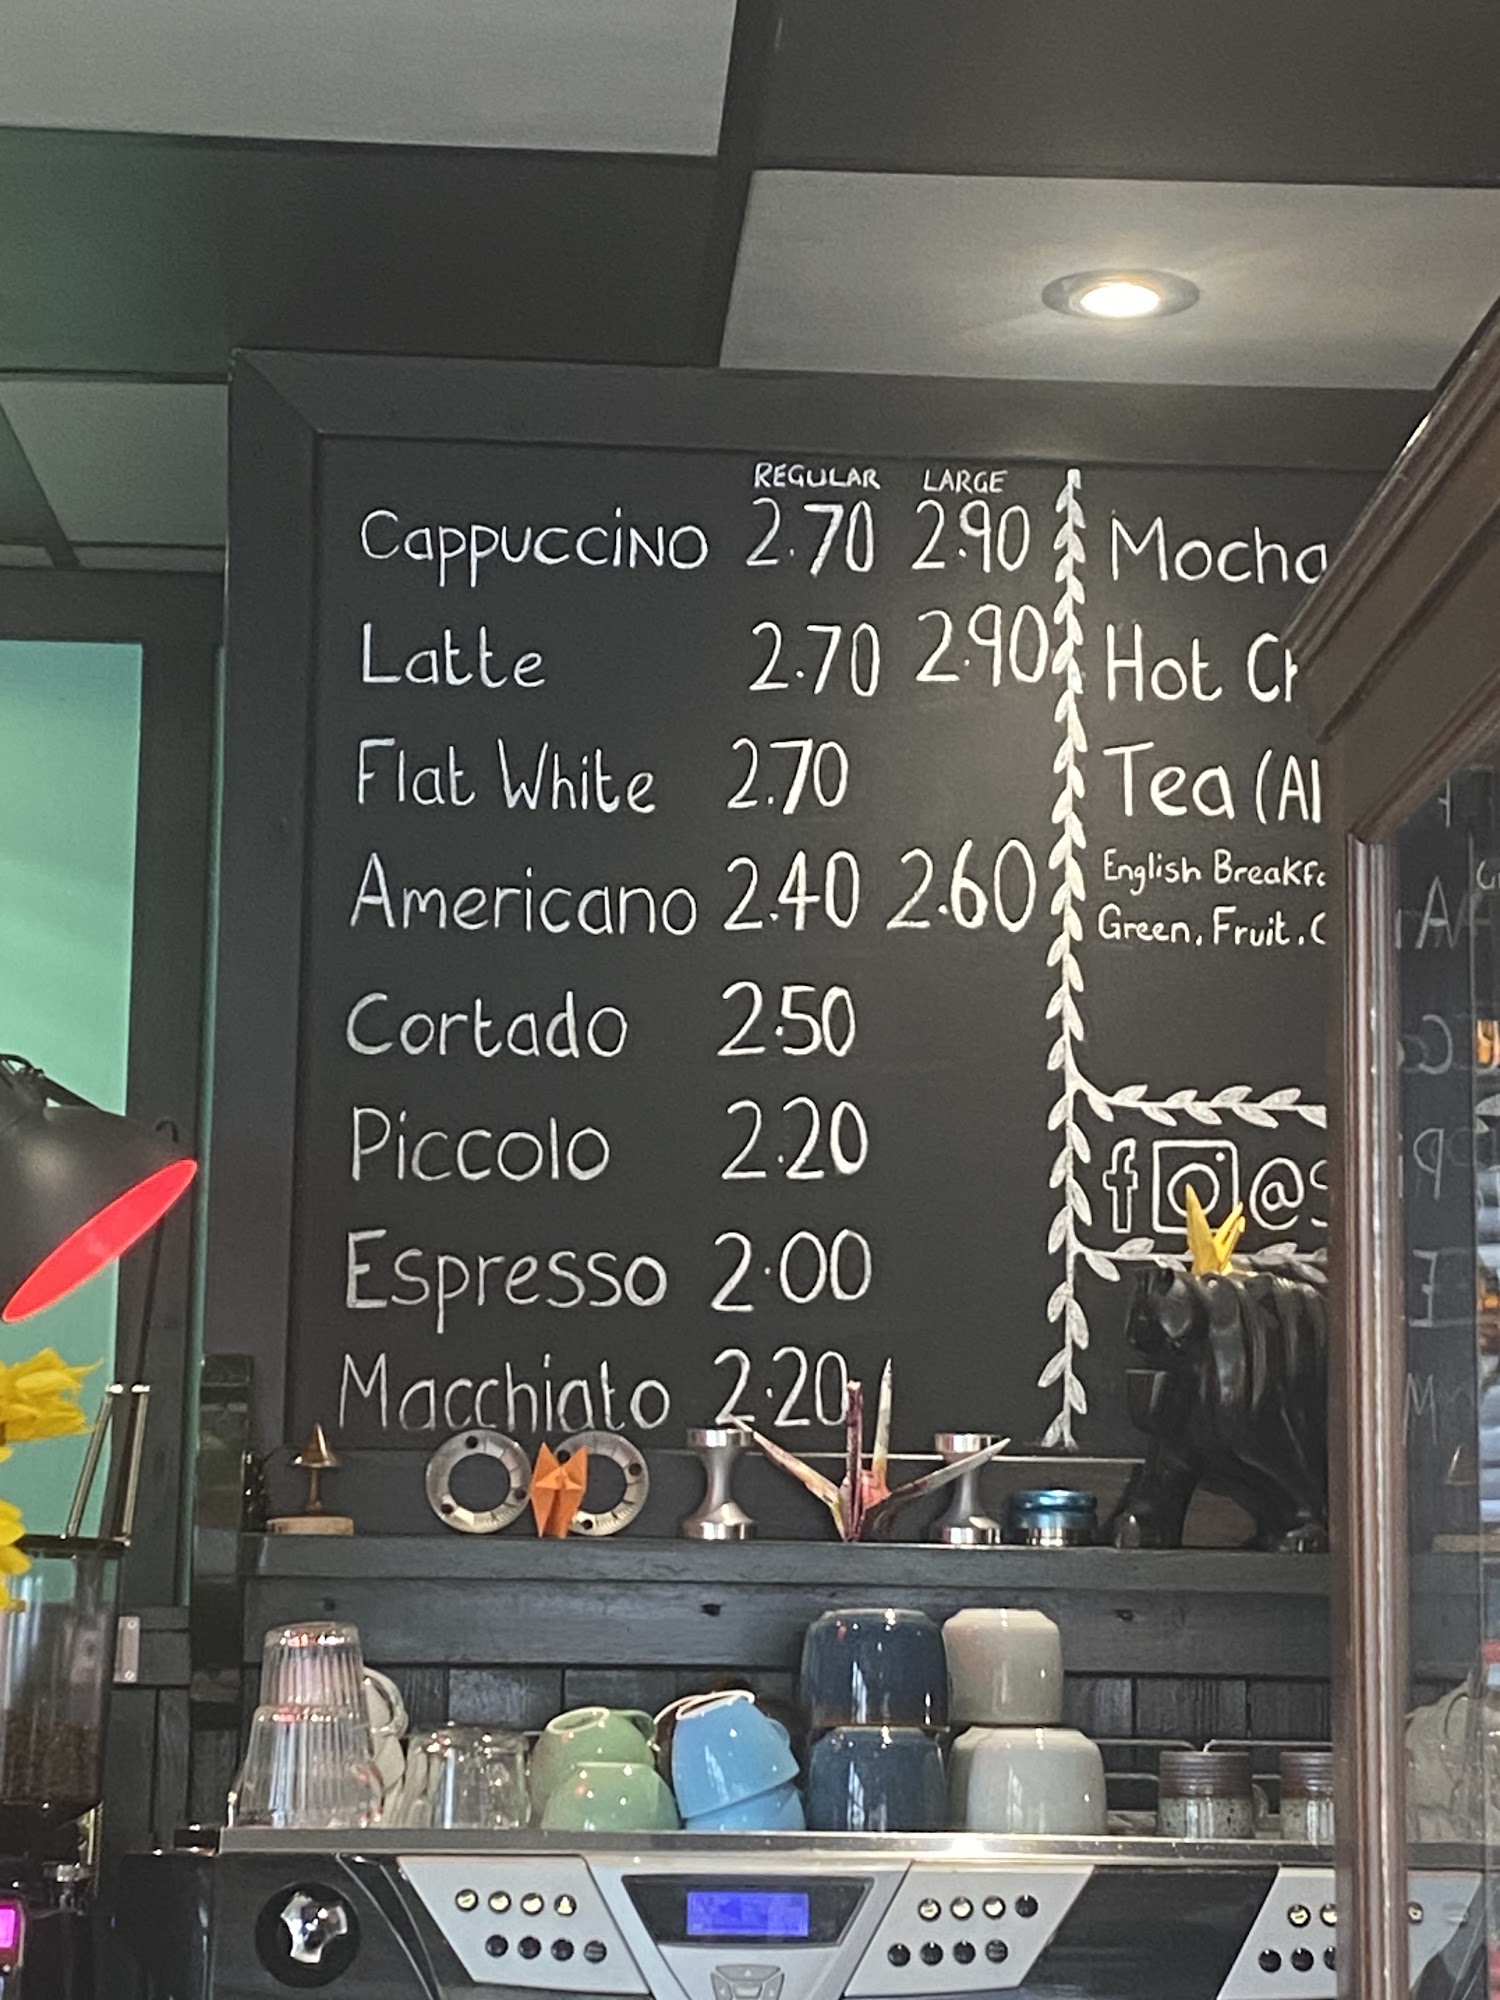 REGULAR LARGE
Cappuccino 2.70 2.90
Latte 2.70 2.90
Flat White 2.70
Americano 2.40 2.60
Cortado 2.50
Piccolo 2.20
Espresso 2.00
Macchiato 2.20
Mocha
Hot
Tea
English
Green, Fruit,
f @